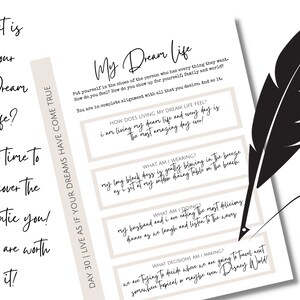 t is
your
Dream
fe?
time to
over the
ntic you!
are worth
it!
DAY 30 | LIVE AS IF YOUR DREAMS HAVE COME TRUE
My Dream Life
Put yourself in the shoes of the person who has every thing they want.
How do you feel? How do you show up for yourself, family and world?
You are in complete alignment with all that you desire. And so it.
HOW DOES LIVING MY DREAM LIFE FEEL?
i am living my dream life and every day is
the most amazing day ever!
WHAT AM I WEARING?
my long black dress is gently blowing in the breeze
as i sit at my outdoor dining table on the beach
WHAT AM I DOING?
my husband and i are eating the most delicious
dinner as we laugh and listen to the waves
WHAT DECISIONS AM I MAKING?
we are trying to decide where we are going to travel next
somewhere tropical or maybe even Disney World!